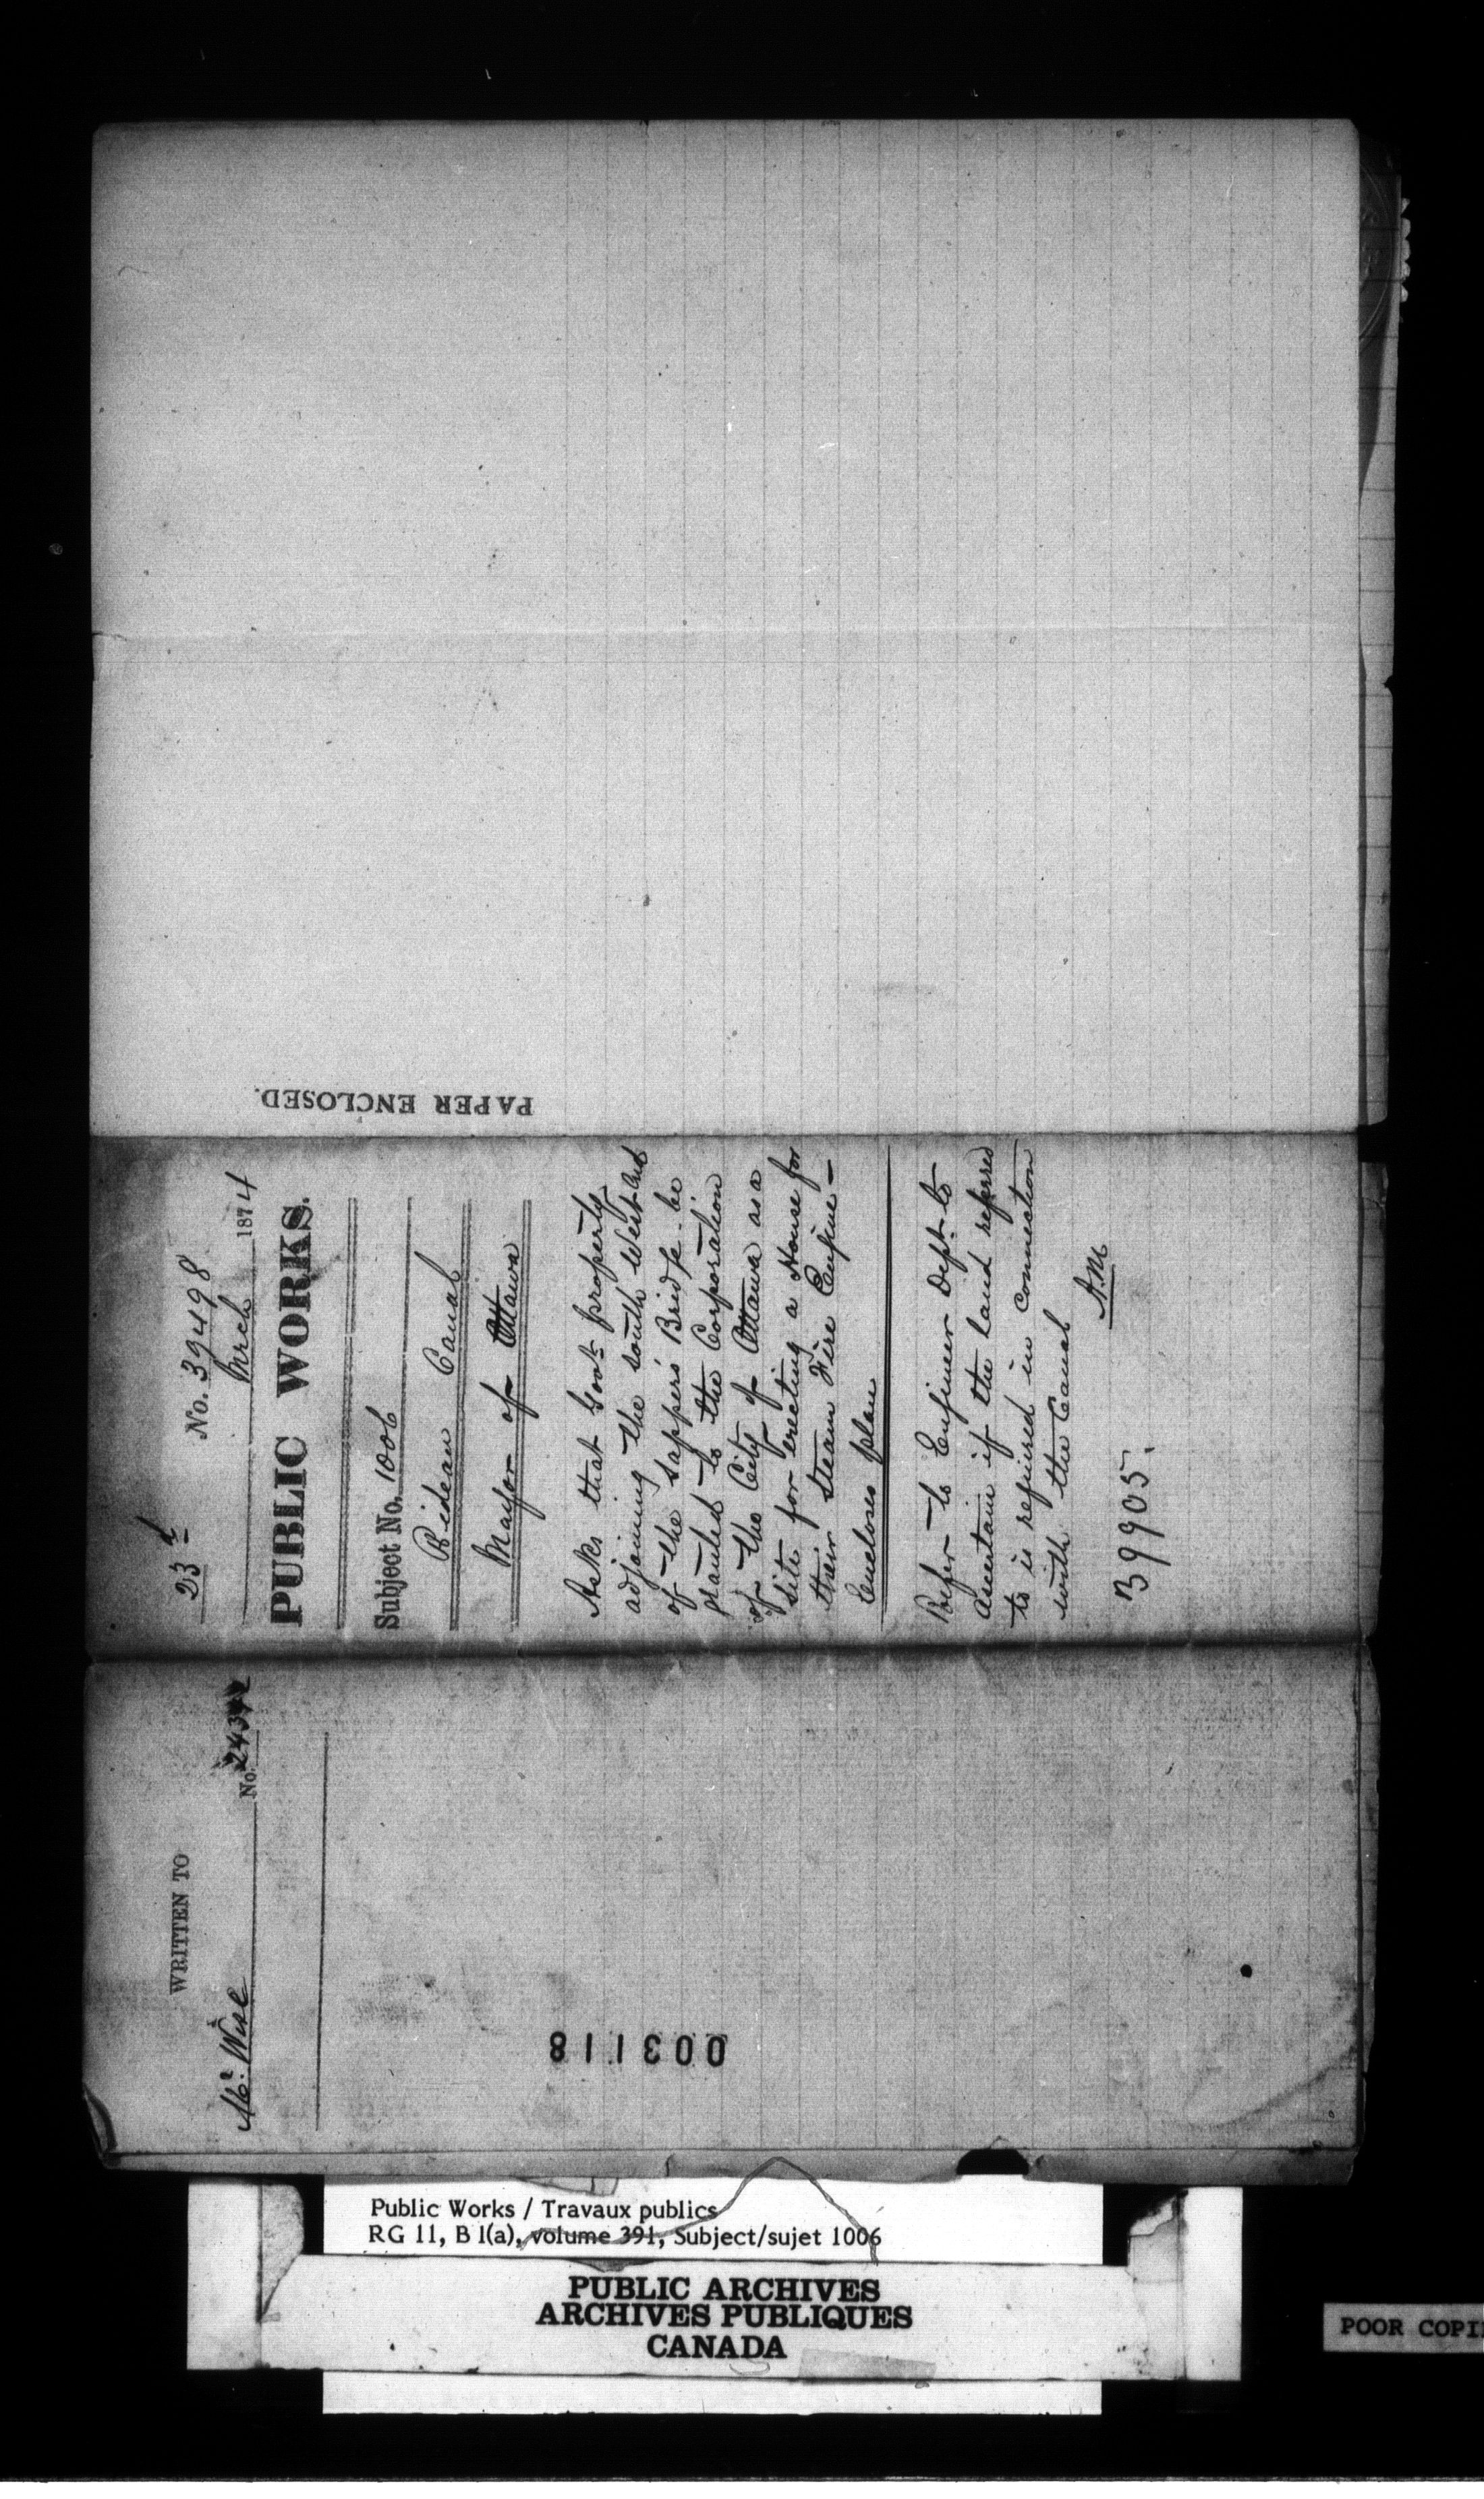 PAPER ENCLOSED.
23d
No. 39498
Mrch 1874
PUBLIC WORKS.
Subject No. 1006
Rideau Canal
Mayor of Ottawa
Asks that Govt. property
adjoining the south West End
of the Sappers' Bridge be
granted to the Corporation
of the City of Ottawa as a
site for erecting a House for
their Steam Fire Engine -
Encloses plan
Refer to Engineer Dept. to
ascertain if the land referred
to is required in connection
with the Canal
A.M
39905.
WRITTEN TO
Mr. Wise No.
003118
Public Works / Travaux publics
RG 11, B 1(a), volume 391, Subject/sujet 1006
PUBLIC ARCHIVES
ARCHIVES PUBLIQUES
CANADA
POOR COPI